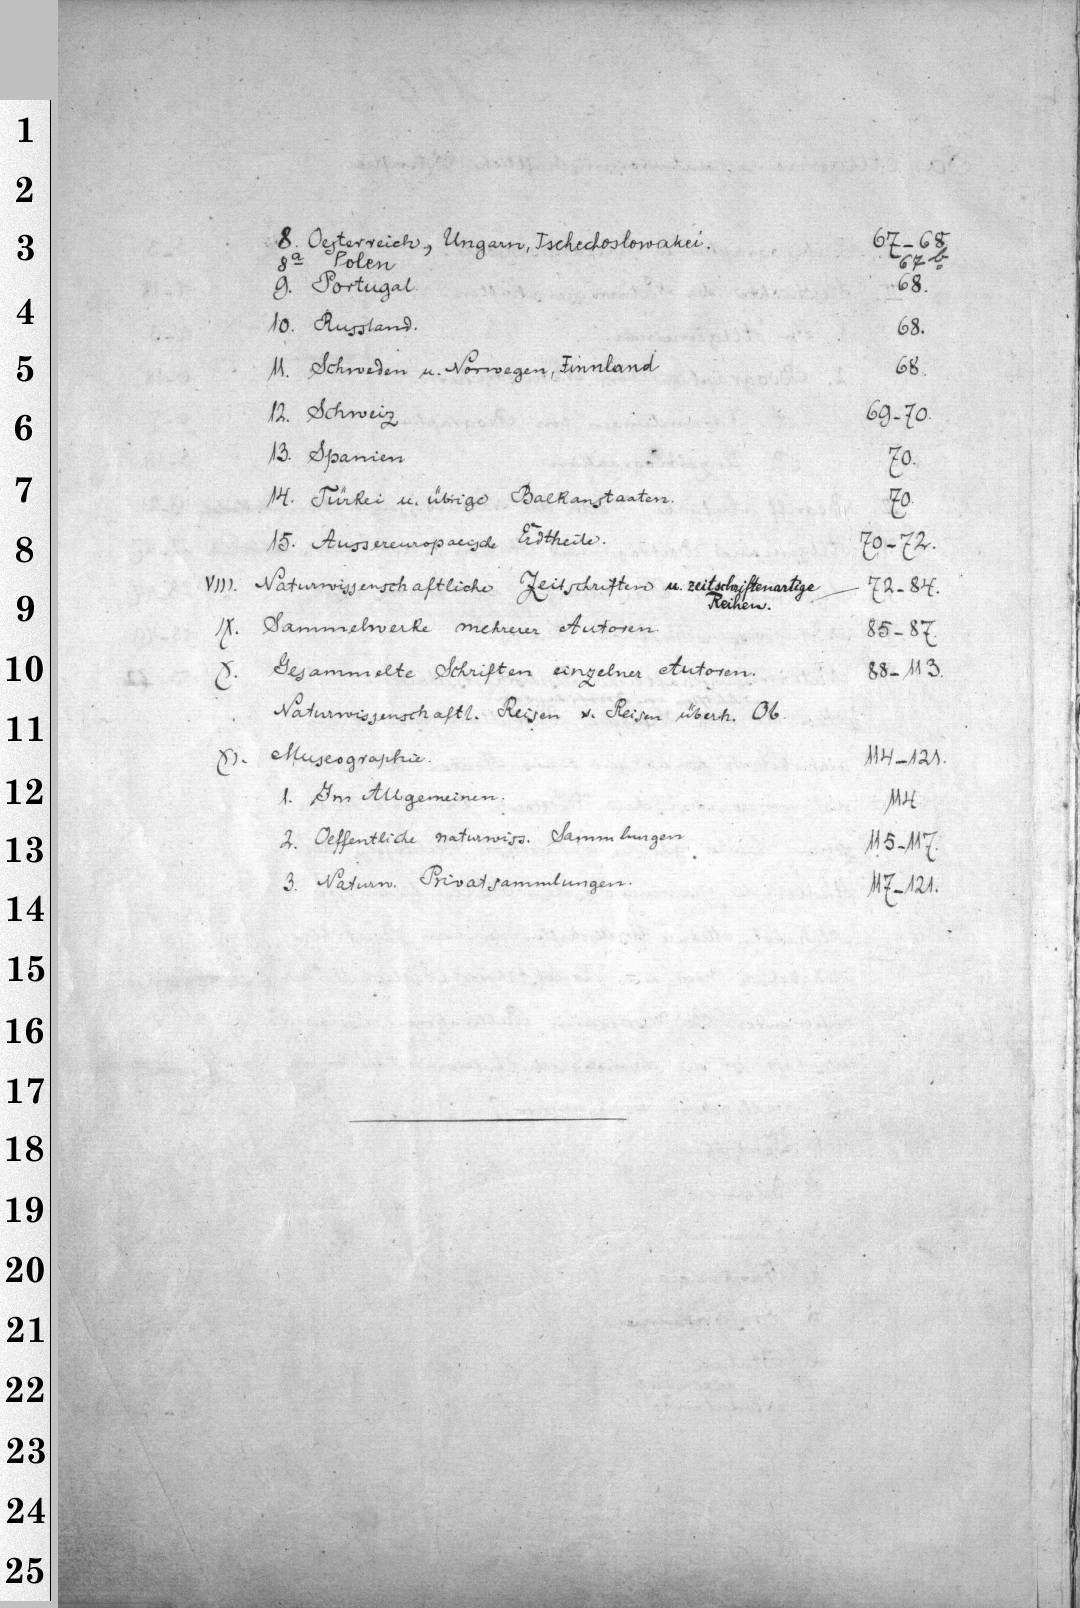 1
2
3
4
5
6
7
8
9
10
11
12
13
14
15
16
17
18
19
20
21
22
23
24
25
8. Oesterreich, Ungarn, Tschechoslowakei. 67-68
8a Polen 67b
9. Portugal 68.
10. Russland. 68.
11. Schweden u. Norwegen, Finnland 68.
12. Schweiz 69-70.
13. Spanien 70.
14. Türkei u. übrige Balkanstaaten. 70.
15. Aussereuropaeische Erdtheile. 70-72.
VIII. Naturwissenschaftliche Zeitschriften u. zeitschriftenartige Reihen. 72-84.
IX. Sammelwerke mehrerer Autoren. 85-87.
X. Gesammelte Schriften einzelner Autoren. 88-113.
Naturwissenschaftl. Reisen v. Reisen überh. Ob.
XI. Museographie. 114-121.
1. Im Allgemeinen. 114
2. Oeffentliche naturwiss. Sammlungen 115-117.
3. Naturw. Privatsammlungen. 117-121.